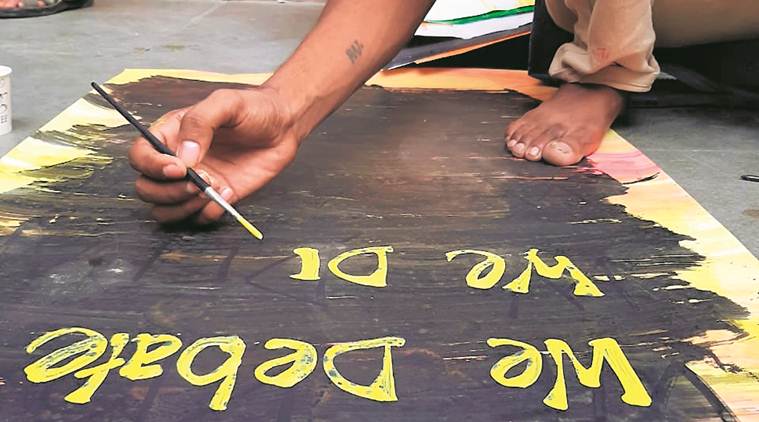 We Debate
We Di